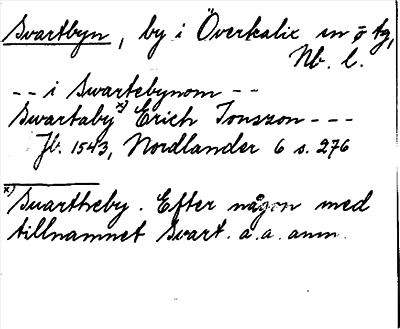 Svartbyn, by i Överkalix sn ö tg,
Nb. l.
-- i Swartebynom --
Swartaby x) Erich Jonszon ---
Jb. 1543, Nordlander 6 s. 276
x) Svartheby. Efter någon med
tillnamnet Svart. a.a. anm.